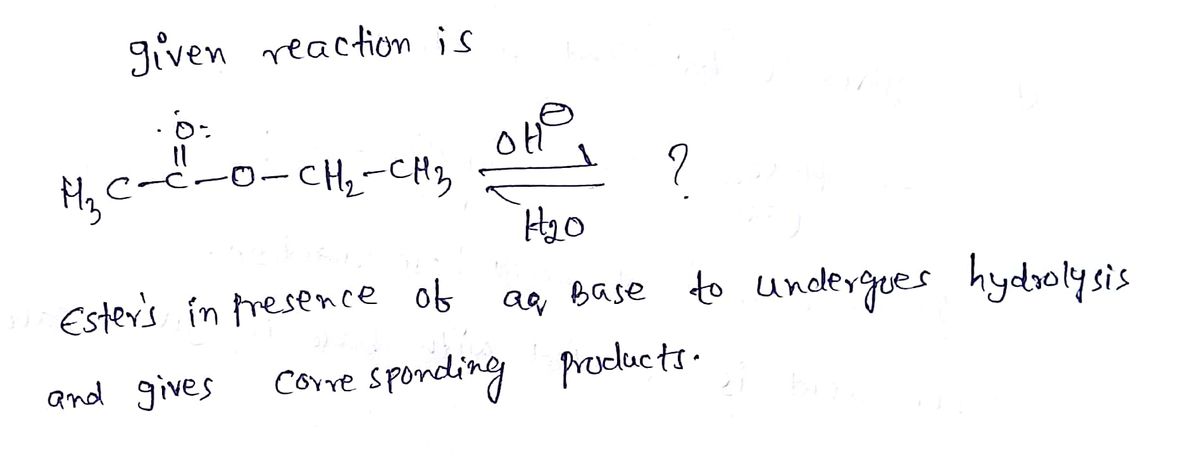 given reaction is
:O:
||
H₃C-C-O-CH₂-CH₃ ⇌ ?
OH⊖
H₂O
Ester's in presence of aq Base to undergoes hydrolysis
and gives corresponding products.